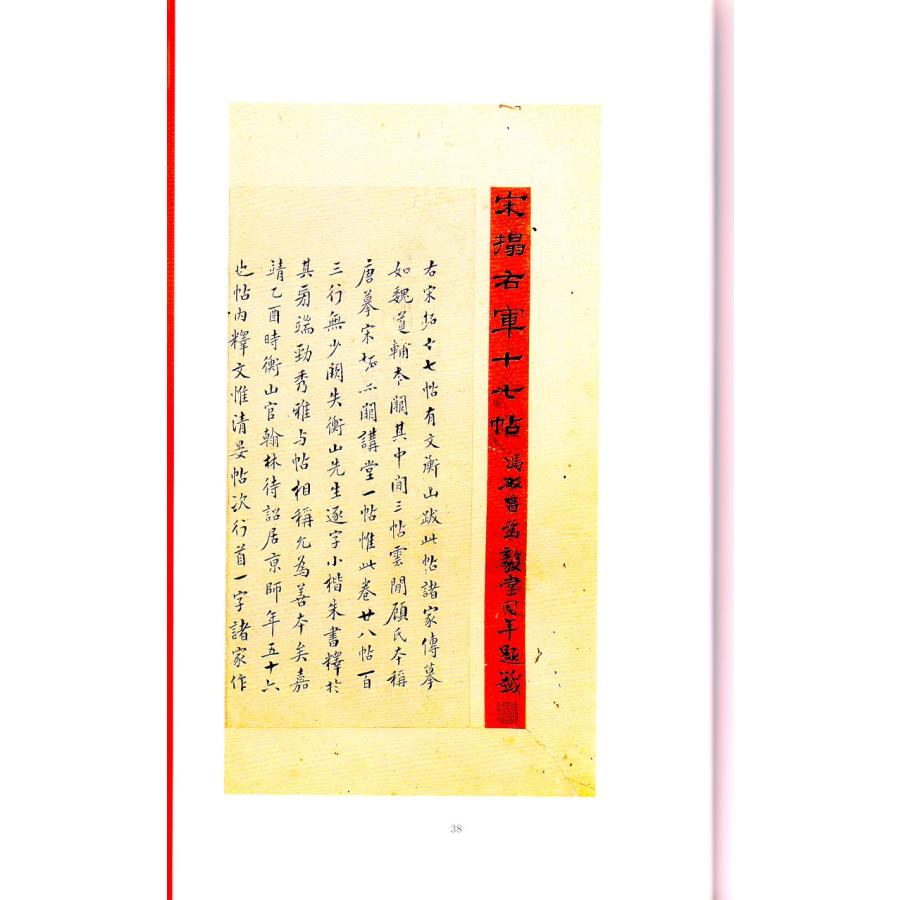 宋搨右軍十七帖
馮敏昌為毅堂同年題籤
右宋拓十七帖有文衡山跋此帖諸家傳摹
如魏道輔本闕其中間三帖雲間顧氏本稱
唐摹宋拓亦闕講堂一帖惟此卷廿八帖一百
三行無少闕失衡山先生逐字小楷朱書釋於
其旁端勁秀雅与帖相稱允為善本矣嘉
靖乙酉時衡山官翰林待詔居京師年五十六
也帖内釋文惟清晏帖次行首一字諸家作
38